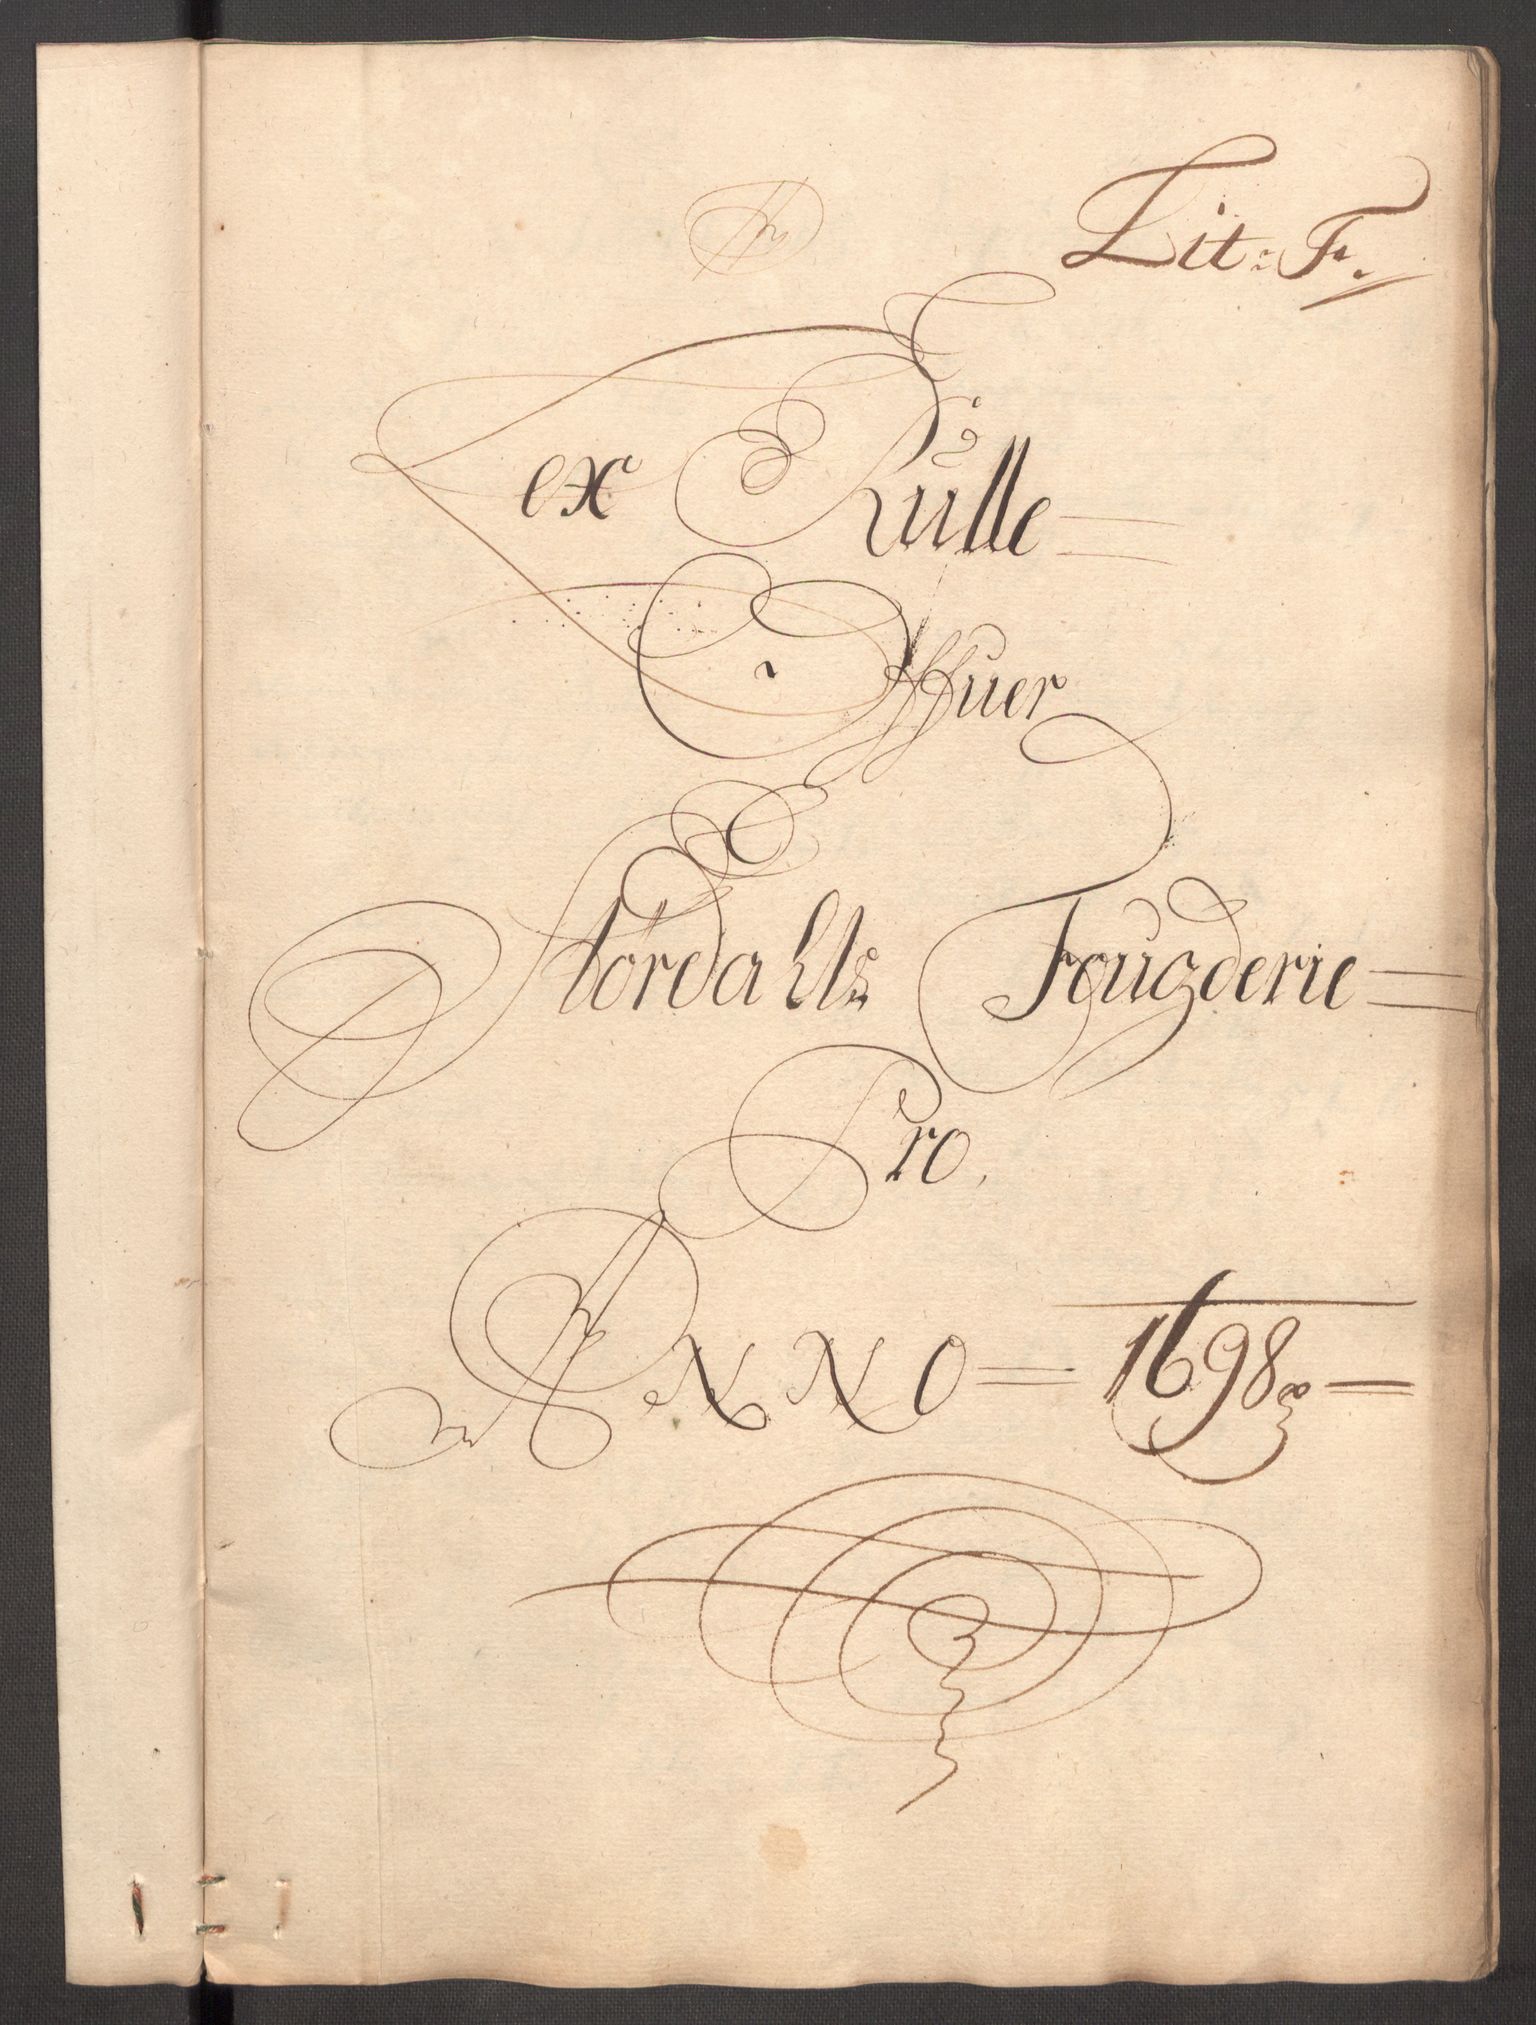 Lit: F.
Lex Rulle
Offuer
Størdahls Fougderie
Pro.
ANNO 1698